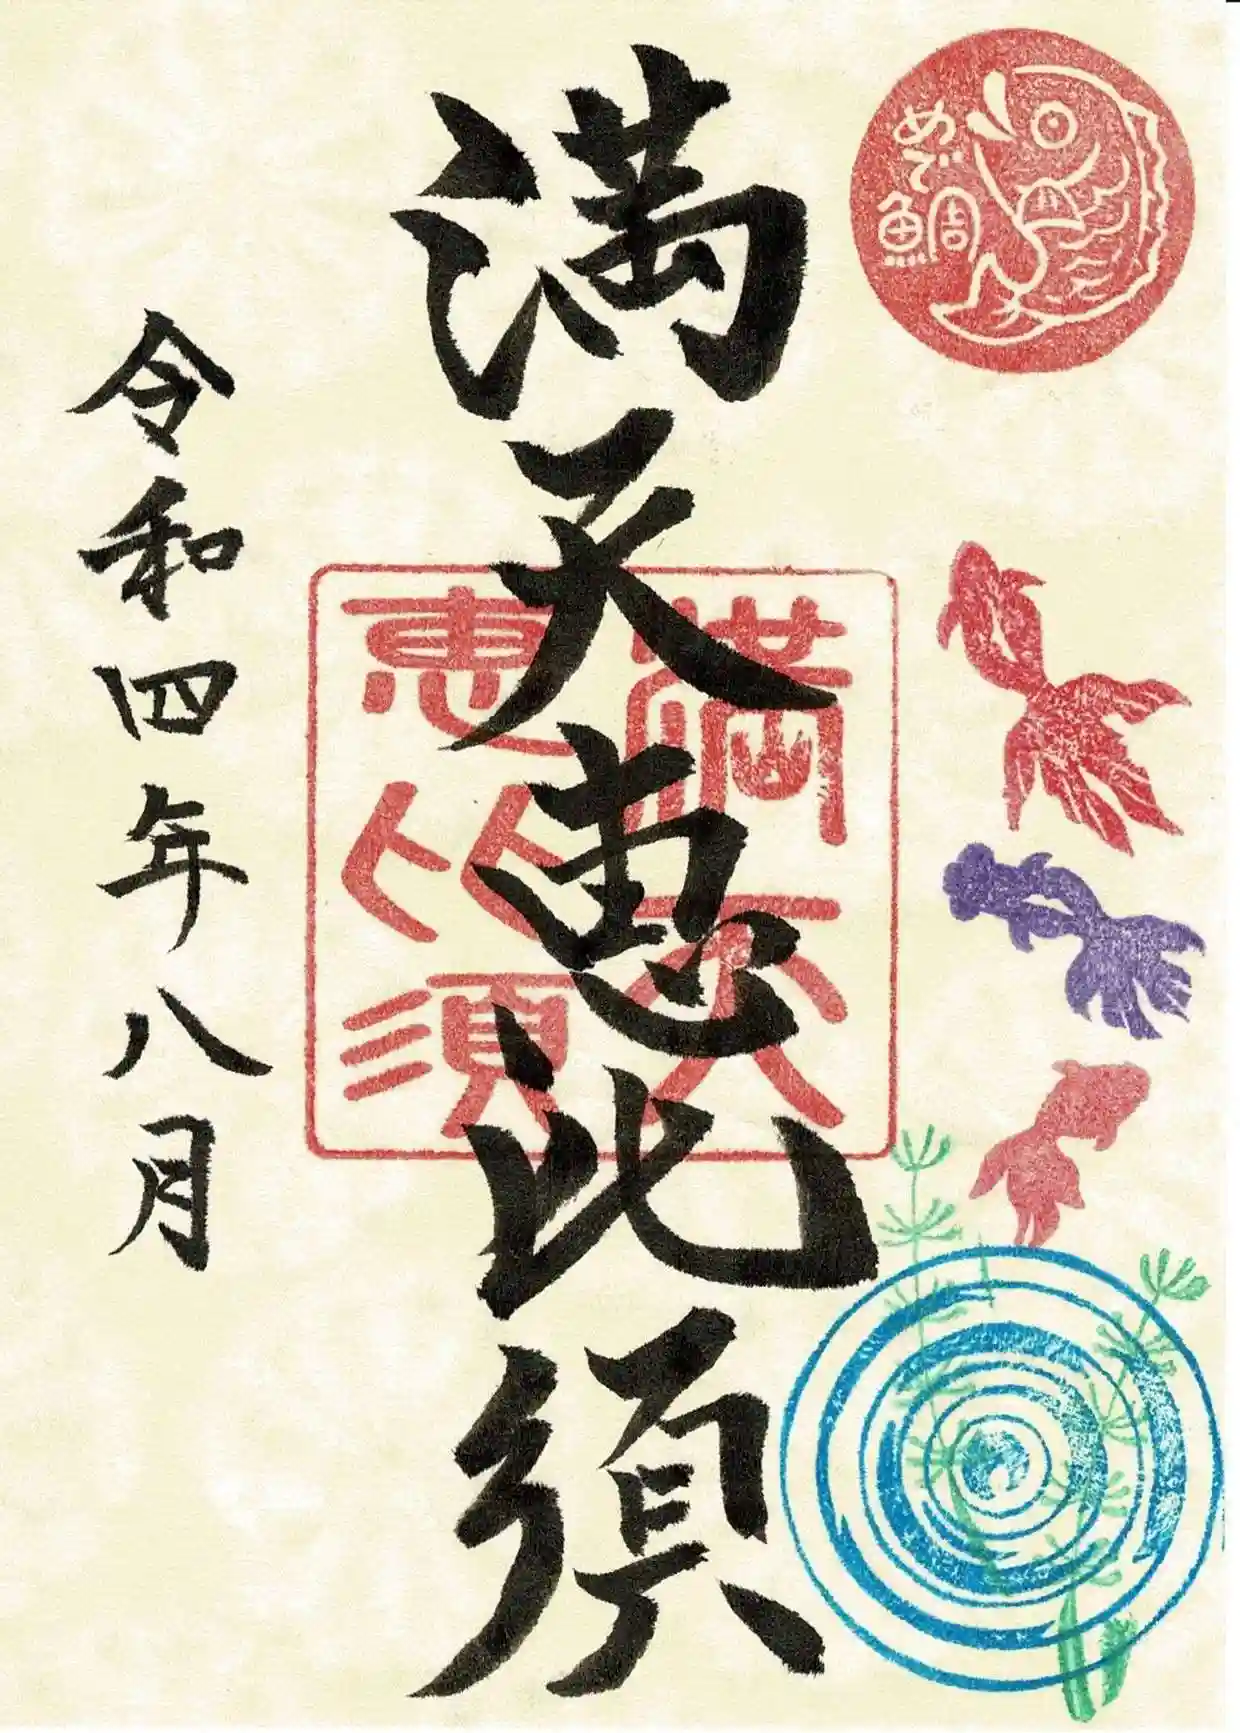 めで
鯛
満天恵比須
満天
恵比須
令和四年八月